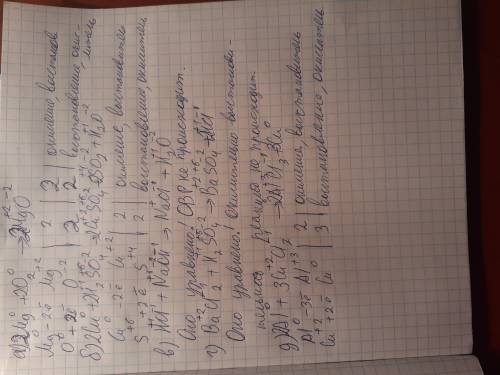 а) 2Mg⁰ + O₂⁰ → 2Mg⁺²O⁻²
Mg⁰ - 2ē Mg⁺² | 2 | 2 окисление, восстанов
O⁰ + 2ē O⁻² | 2 | 2 восстановление, окис-
литель
Cu⁰ - 2ē Cu⁺² | 2 | окисление, восстановитель
S⁺⁶ + 2ē S⁺⁴ | 2 | восстановление, окислитель
в) HCl + NaOH → NaCl + H₂O
Оно уравнено! ОВР не происходит.
г) BaCl₂ + H₂SO₄ → BaSO₄ + 2HCl
Оно уравнено! Окислительно-восстанови-
тельной реакции не происходит.
д) 2Al + 3CuCl₂ → 2AlCl₃ + 3Cu⁰
Al⁰ - 3ē Al⁺³ | 2 | окисление, восстановитель
Cu⁺² + 2ē Cu⁰ | 3 | восстановление, окислитель